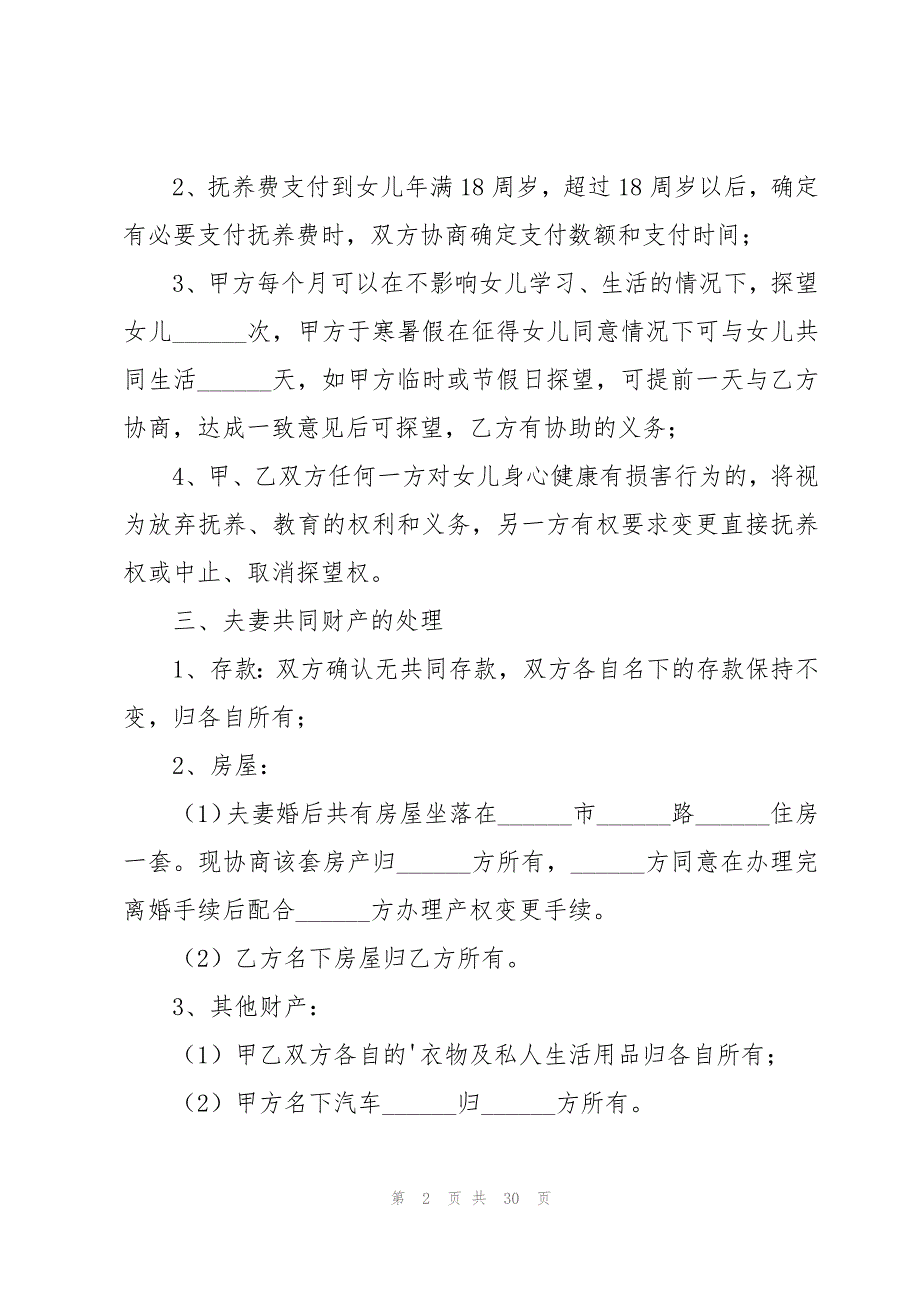 2、抚养费支付到女儿年满18周岁，超过18周岁以后，确定
有必要支付抚养费时，双方协商确定支付数额和支付时间；
3、甲方每个月可以在不影响女儿学习、生活的情况下，探望
女儿______次，甲方于寒暑假在征得女儿同意情况下可与女儿共
同生活______天，如甲方临时或节假日探望，可提前一天与乙方
协商，达成一致意见后可探望，乙方有协助的义务；
4、甲、乙双方任何一方对女儿身心健康有损害行为的，将视
为放弃抚养、教育的权利和义务，另一方有权要求变更直接抚养
权或中止、取消探望权。
三、夫妻共同财产的处理
1、存款：双方确认无共同存款，双方各自名下的存款保持不
变，归各自所有；
2、房屋：
（1)夫妻婚后共有房屋坐落在______市______路______住房
一套。现协商该套房产归______方所有，______方同意在办理完
离婚手续后配合______方办理产权变更手续。
（2）乙方名下房屋归乙方所有。
3、其他财产：
（1）甲乙双方各自的'衣物及私人生活用品归各自所有；
（2）甲方名下汽车______归______方所有。
第 2 页 共 30 页